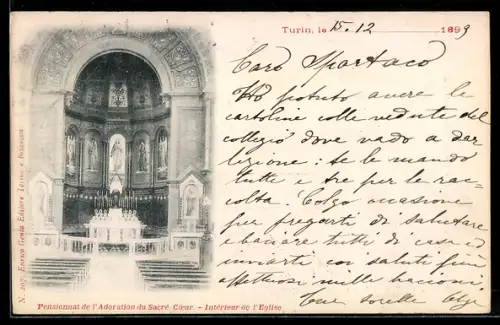 Turin, le 15.12 1899
Caro Spartaco
Ho potuto avere le
cartoline colle vedute del
collegio dove vado a dar
lezione: te le mando
tutte e tre per la rac-
colta. Colgo occasione
per pregarti di salutare
e baciare tutti di casa ed
inviarti coi saluti più
affettuosi mille bacioni.
Tua sorella
N. 107. Enrico Genta Editore Torino
Pensionnat de l'Adoration du Sacré Cœur. - Intérieur de l'Eglise